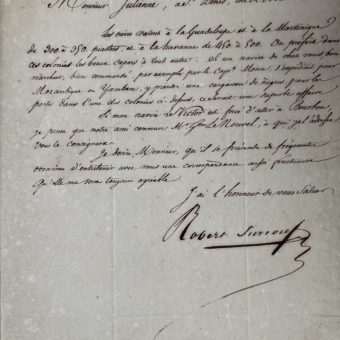 Monsieur Julienne, à St. Louis,
Les noirs valent à la Guadeloupe et à la Martinique
de 300 à 350 piastres et à la havanne de 450 à 500. On préfère dans
ces colonies les beaux Cafres à tout autre. Si un navire de chez vous bon
marcheur, bien commandé par exemple par le Capne. s'expédiait pour
Mozambique ou y prendre une cargaison de nègres pour les
porter dans l'une des colonies ci-dessus, ce serait une superbe affaire
Si mon navire Le Victor est dans d'aller à Bourbon,
je pense que notre ami commun Mr. à qui je l'adresse
vous le consignera.
Je désire, Monsieur, qu'il se présente de fréquentes
occasions d'entretenir avec vous une correspondance aussi fructueuse
Qu'elle me sera toujours agréable.
J'ai l'honneur de vous Saluer
Robert Surcouf